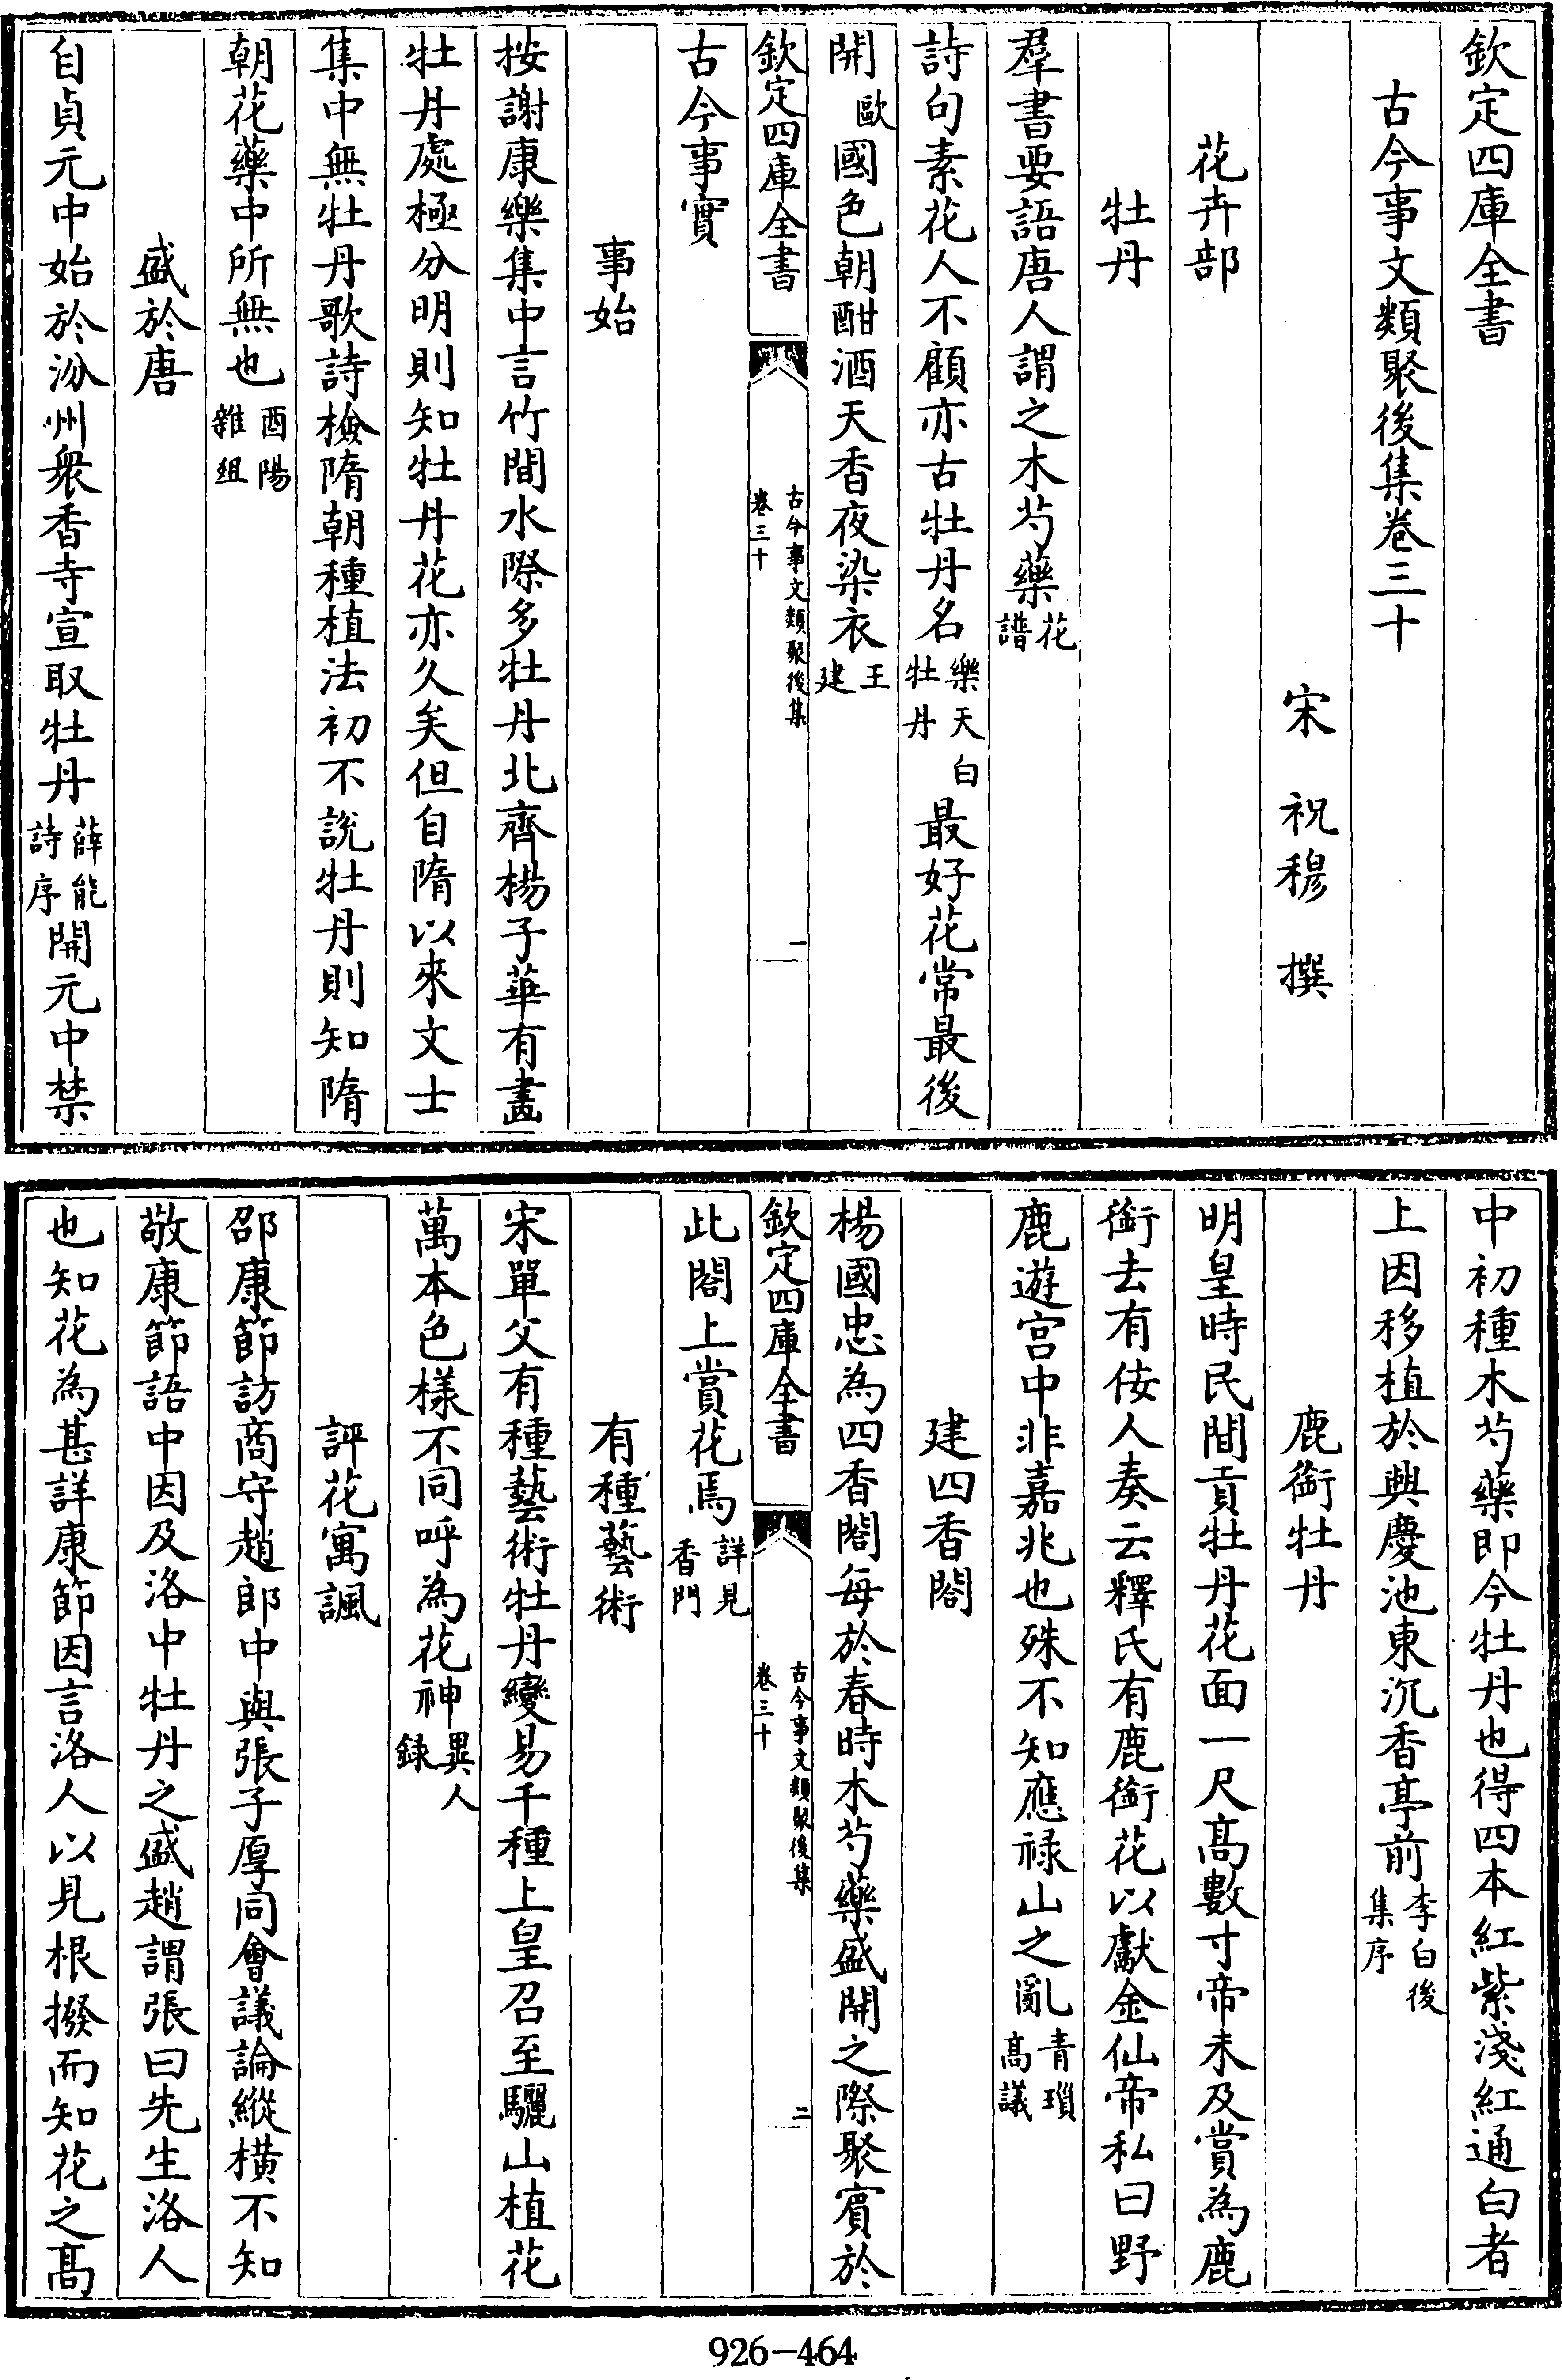 欽定四庫全書
古今事文類聚後集卷三十
宋　祝穆　撰
花卉部
牡丹
羣書要語唐人謂之木芍藥花譜
詩句素花人不顧亦古牡丹名樂天白牡丹最好花常最後
開歐國色朝酣酒天香夜染衣王建
欽定四庫全書
古今事文類聚後集
卷三十
一
古今事實
事始
按謝康樂集中言竹間水際多牡丹北齊楊子華有畫
牡丹處極分明則知牡丹花亦久矣但自隋以來文士
集中無牡丹歌詩檢隋朝種植法初不說牡丹則知隋
朝花藥中所無也酉陽雜俎
盛於唐
自貞元中始於汾州衆香寺宣取牡丹薛能詩序開元中禁
中初種木芍藥即今牡丹也得四本紅紫淺紅通白者
上因移植於興慶池東沉香亭前李白後集序
鹿銜牡丹
明皇時民間貢牡丹花面一尺高數寸帝未及賞為鹿
銜去有佞人奏云釋氏有鹿銜花以獻金仙帝私曰野
鹿遊宮中非嘉兆也殊不知應祿山之亂青瑣高議
建四香閣
楊國忠為四香閣每於春時木芍藥盛開之際聚賓於
欽定四庫全書
古今事文類聚後集
卷三十
二
此閣上賞花焉詳見香門
有種藝術
宋單父有種藝術牡丹變易千種上皇召至驪山植花
萬本色樣不同呼為花神異人錄
評花寓諷
邵康節訪商守趙郎中與張子厚同會議論縱橫不知
敬康節語中因及洛中牡丹之盛趙謂張曰先生洛人
也知花為甚詳康節因言洛人以見根撥而知花之高
926-464